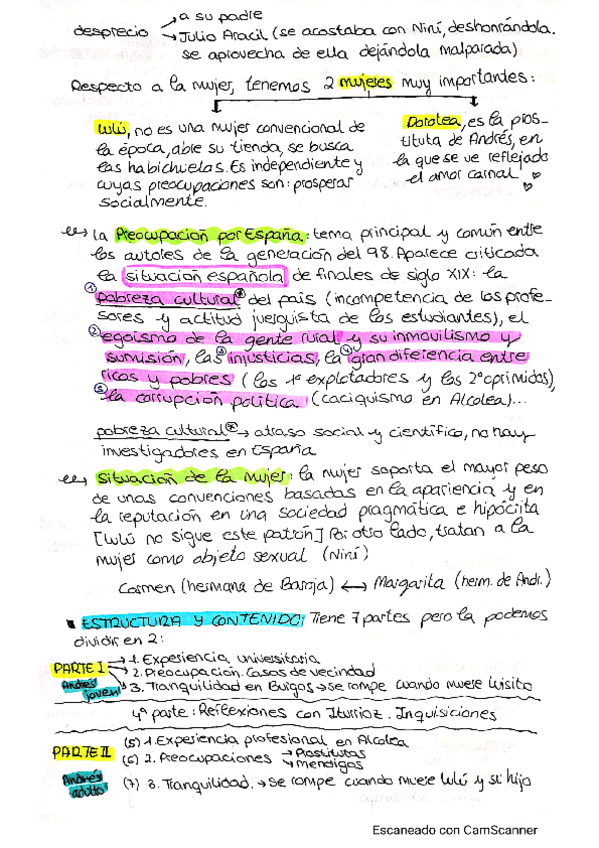 a su padre
desprecio
Julio Aracil (se acostaba con Niní, deshonrándola.
se aprovecha de ella dejándola malparada)
Respecto a la mujer, tenemos 2 mujeres muy importantes:
Lulú, no es una mujer convencional de
la época, abre su tienda, se busca
las habichuelas. Es independiente y
cuyas preocupaciones son: prosperar
socialmente.
Dorotea, es la pros-
tituta de Andrés, en
la que se ve reflejado
el amor carnal
La Preocupación por España: tema principal y común entre
los autores de la generación del 98. Aparece criticada
la situación española de finales de siglo XIX: la
① pobreza cultural* del país (incompetencia de los profe-
sores y actitud juerguista de los estudiantes), el
② egoísmo de la gente rural y su inmovilismo y
sumisión, las ③ injusticias, la ④ gran diferencia entre
ricos y pobres (los 1º explotadores y los 2º oprimidos),
⑤ la corrupción política (caciquismo en Alcolea)...
pobreza cultural* → atraso social y científico, no hay
investigadores en España
Situación de la mujer: la mujer soporta el mayor peso
de unas convenciones basadas en la apariencia y en
la reputación en una sociedad pragmática e hipócrita
[Lulú no sigue este patrón] Por otro lado, tratan a la
mujer como objeto sexual (Niní)
Carmen (hermana de Baroja) ↔ Margarita (herm. de Andr.)
ESTRUCTURA Y CONTENIDO: Tiene 7 partes pero la podemos
dividir en 2:
PARTE I
Andrés joven
1. Experiencia universitaria
2. Preocupación. Casas de vecindad
3. Tranquilidad en Burgos → se rompe cuando muere Luisito
4º parte: Reflexiones con Iturrioz. Inquisiciones
PARTE II
Andrés adulto
(5) 1. Experiencia profesional en Alcolea
(6) 2. Preocupaciones → Prostitutas
→ Mendigos
(7) 3. Tranquilidad. → se rompe cuando muere Lulú y su hijo
Escaneado con CamScanner